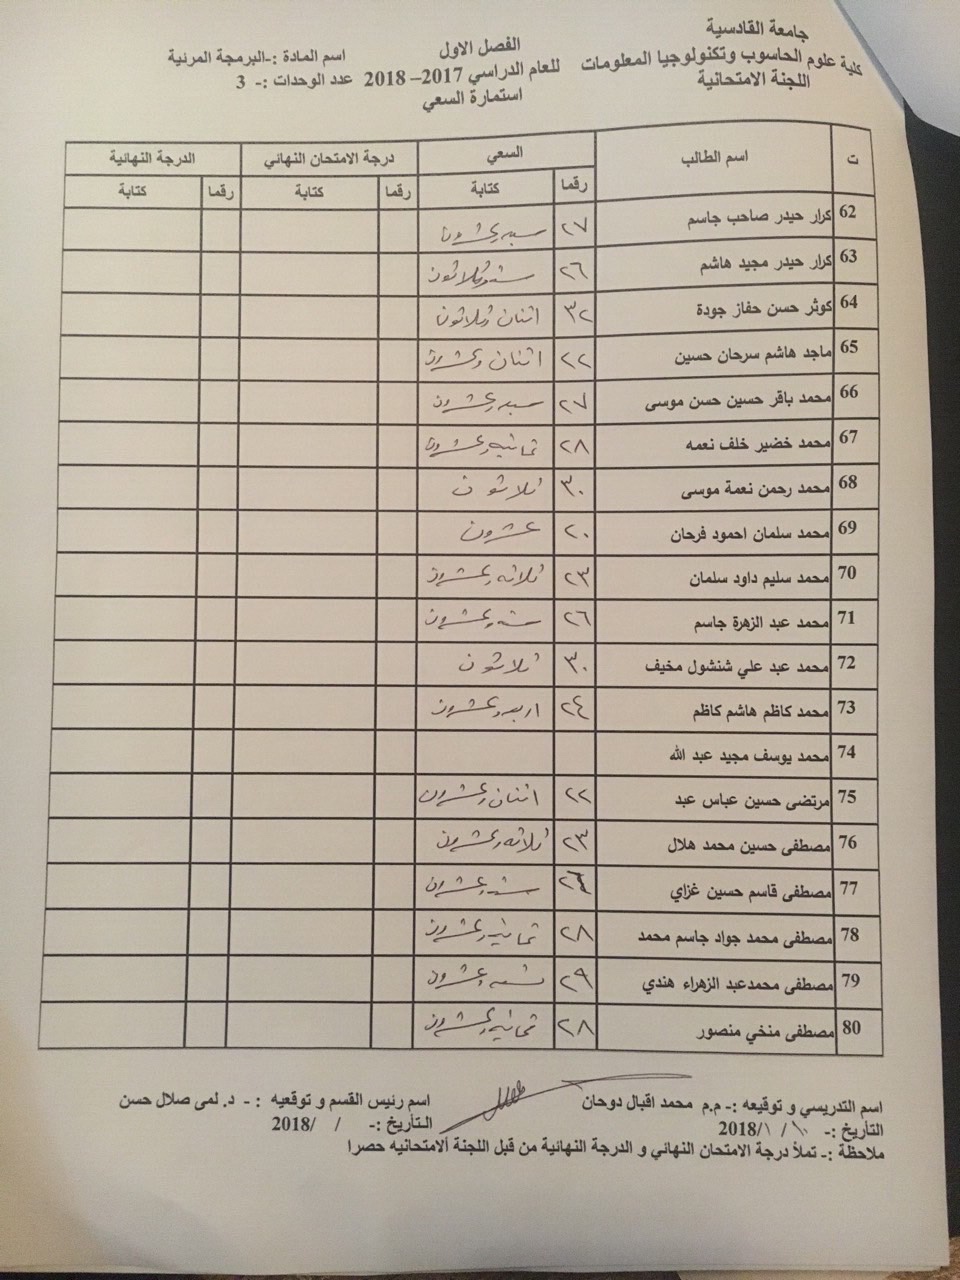 جامعة القادسية
كلية علوم الحاسوب وتكنولوجيا المعلومات
اللجنة الامتحانية
الفصل الاول
للعام الدراسي 2017– 2018
استمارة السعي
اسم المادة :-البرمجة المرئية
عدد الوحدات :- 3
ت اسم الطالب السعي درجة الامتحان النهائي الدرجة النهائية
رقما كتابة رقما كتابة رقما كتابة
62 كرار حيدر صاحب جاسم ٢٧ سبعه وعشرون
63 كرار حيدر مجيد هاشم ٢٦ سته وثلاثون
64 كوثر حسن حفاز جودة ٣٢ اثنان وثلاثون
65 ماجد هاشم سرحان حسين ٢٢ اثنان وعشرون
66 محمد باقر حسين حسن موسى ٢٧ سبعه وعشرون
67 محمد خضير خلف نعمه ٢٨ ثمانيه وعشرون
68 محمد رحمن نعمة موسى ٣٠ ثلاثون
69 محمد سلمان احمود فرحان ٢٠ عشرون
70 محمد سليم داود سلمان ٢٣ ثلاثه وعشرون
71 محمد عبد الزهرة جاسم ٢٦ سته وعشرون
72 محمد عبد علي شنشول مخيف ٣٠ ثلاثون
73 محمد كاظم هاشم كاظم ٢٤ اربعه وعشرون
74 محمد يوسف مجيد عبد الله
75 مرتضى حسين عباس عبد ٢٢ اثنان وعشرون
76 مصطفى حسين محمد هلال ٢٣ ثلاثه وعشرون
77 مصطفى قاسم حسين غزاي سته وعشرون
78 مصطفى محمد جواد جاسم محمد ٢٨ ثمانيه وعشرون
79 مصطفى محمدعبد الزهراء هندي ٢٩ تسعه وعشرون
80 مصطفى منخي منصور ٢٨ ثمانيه وعشرون
اسم التدريسي و توقيعه :- م.م محمد اقبال دوحان
التأريخ :- ١٠ / ١ /2018
اسم رئيس القسم و توقعيه :- د. لمى صلال حسن
التأريخ :- / /2018
ملاحظة :- تملأ درجة الامتحان النهائي و الدرجة النهائية من قبل اللجنة الامتحانيه حصرا